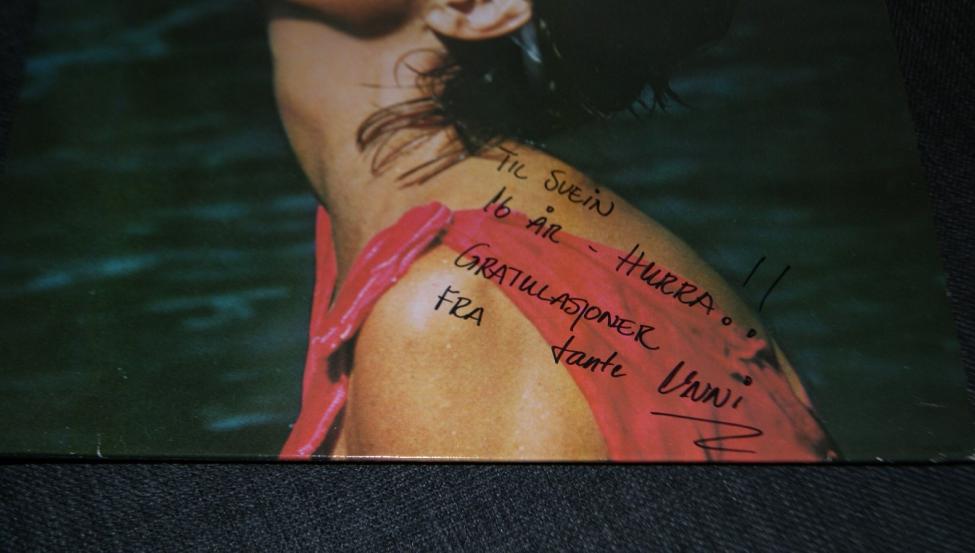 TIL SVEIN
16 ÅR - HURRA..!!
GRATULASJONER
FRA
tante Unni